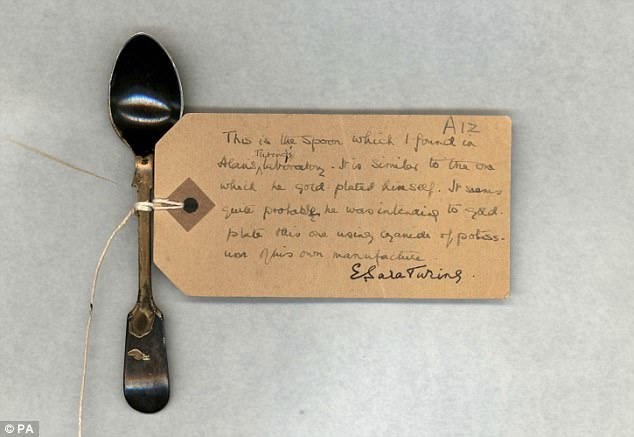 A12
This is the spoon which I found in
Alan Turing's laboratory. It is similar to the one
which he gold-plated himself. It seems
quite probable he was intending to gold-
plate this one using cyanide of potass-
ium of his own manufacture.
E. Sara Turing.
© PA